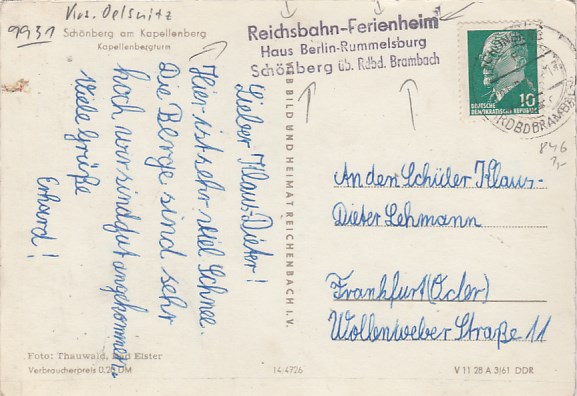 Krs. Oelsnitz
9931
Schönberg am Kapellenberg
Kapellenbergturm
Reichsbahn-Ferienheim
Haus Berlin-Rummelsburg
Schönberg üb. Rdbd. Brambach
10
DEUTSCHE
DEMOKRATISCHE REPUBLIK
RDBD BRAMBE
846
1,-
Lieber Klaus-Dieter!
Hier ist sehr viel Schnee.
Die Berge sind sehr
hoch wir sind gut angekommen.
Viele Grüße
Erhard!
BILD UND HEIMAT REICHENBACH I. V.
An den Schüler Klaus-
Dieter Lehmann
Frankfurt (Oder)
Wollenweber Straße 11
Foto: Thauwald, Bad Elster
Verbraucherpreis 0.20 DM
14/4726
V 11 28 A 3/61 DDR